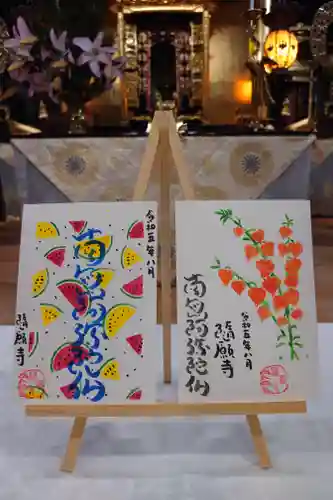 令和五年八月
南無阿弥陀仏
随願寺
令和五年八月
南無阿弥陀仏
随願寺